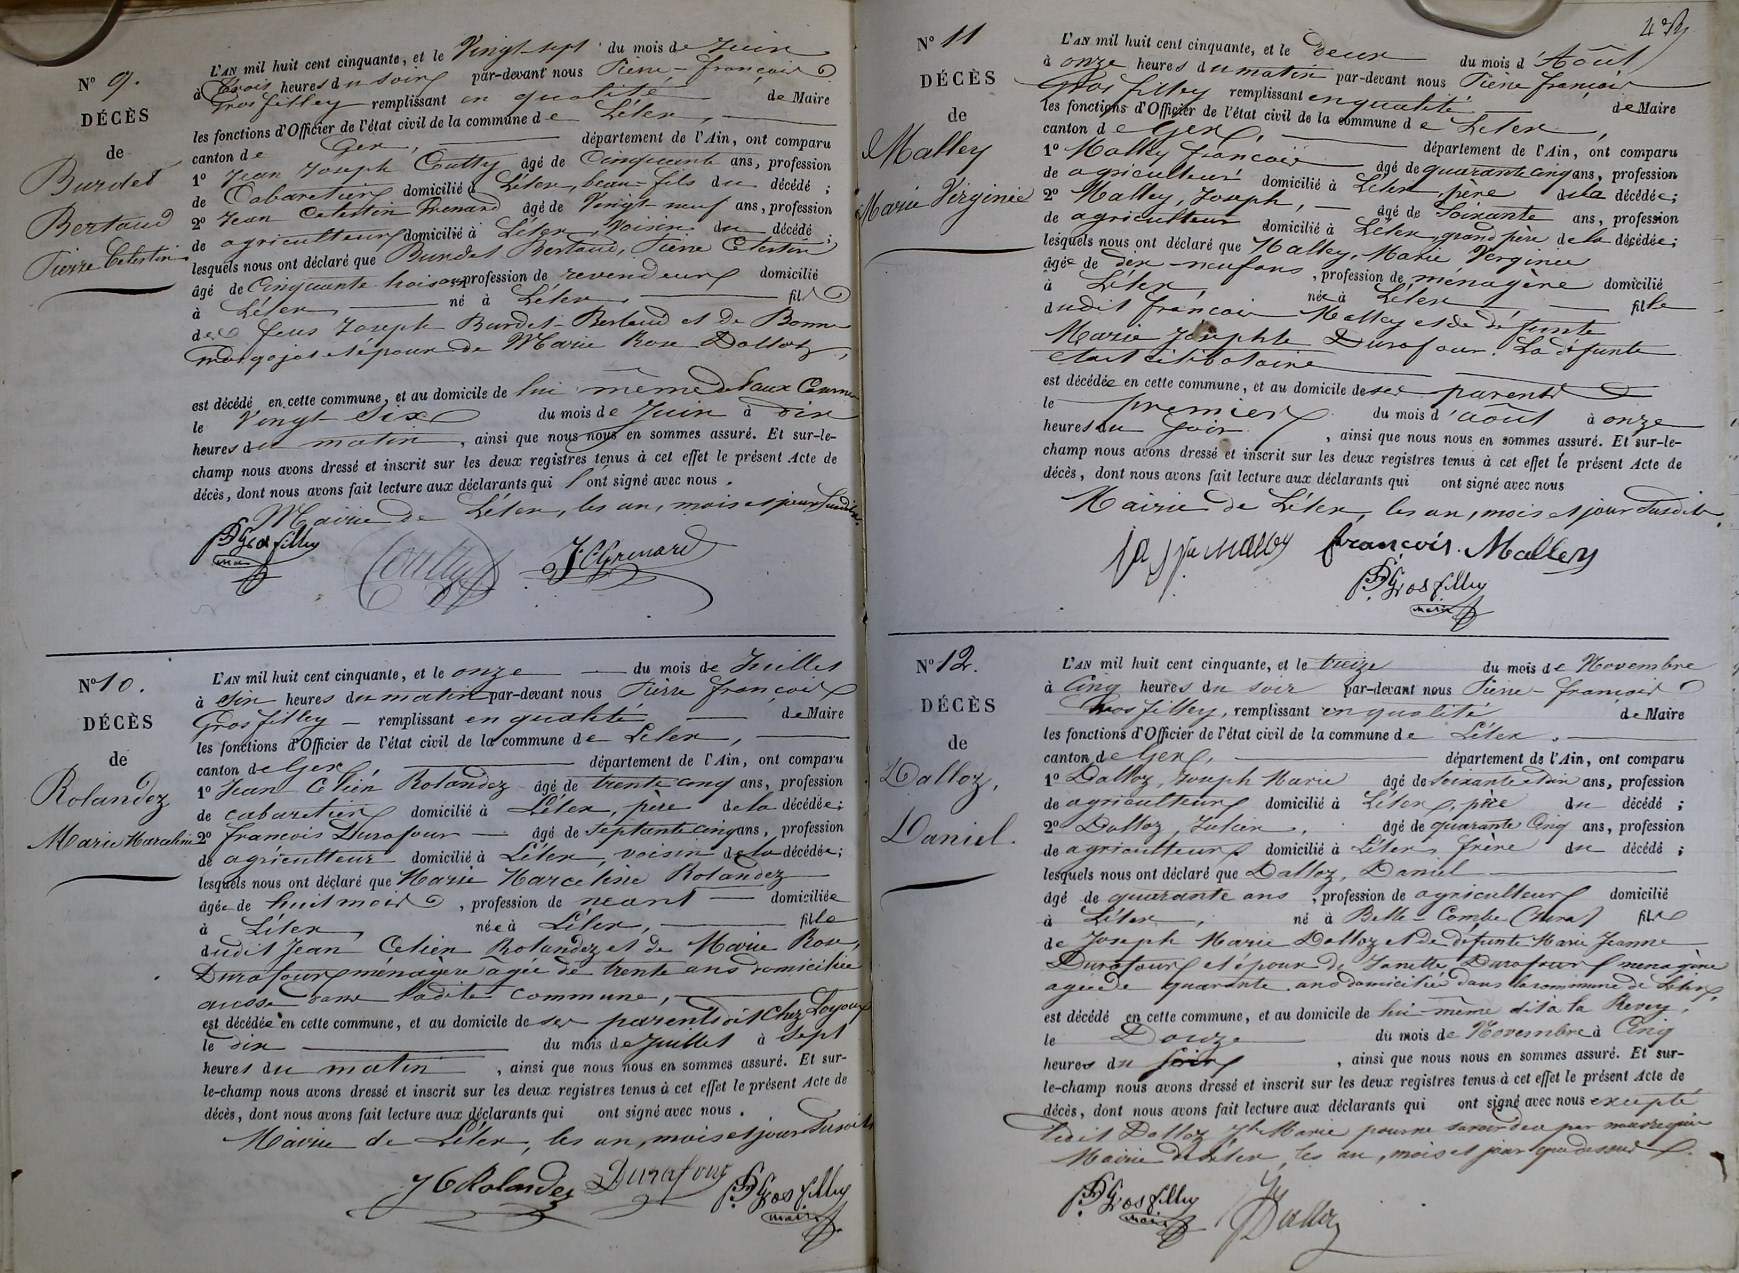 N° 9.
DÉCÈS
de
Burdet
Bertaud
Pierre Celestin
L'AN mil huit cent cinquante, et le Vingt-sept du mois de Juin
à trois heures du soir par-devant nous Pierre-françois
Grosfilley remplissant en qualité de Maire
les fonctions d'Officier de l'état civil de la commune de Lélex,
canton de Gex, département de l'Ain, ont comparu
1° Jean Joseph Coutty âgé de Cinquante ans, profession
de Cabaretier domicilié à Lélex, beau-fils du décédé ;
2° Jean Celestin Grenard âgé de Vingt neuf ans, profession
de agriculteur domicilié à Lélex, Voisin du décédé ;
lesquels nous ont déclaré que Burdet Bertaud, Pierre Celestin
âgé de Cinquante trois ans, profession de revendeur domicilié
à Lélex né à Lélex, fils
de feus Joseph Burdet-Bertaud et De Bonne
et époux de Marie Rose Dalloz,
est décédé en cette commune, et au domicile de lui même
le Vingt Six du mois de Juin à dix
heures du matin, ainsi que nous nous en sommes assuré. Et sur-le-
champ nous avons dressé et inscrit sur les deux registres tenus à cet effet le présent Acte de
décès, dont nous avons fait lecture aux déclarants qui l'ont signé avec nous.
Mairie de Lélex, les an, mois et jour susdits.
Grosfilley
maire
Coutty
J C Grenard
N° 10.
DÉCÈS
de
Rolandez
Marie Marceline
L'AN mil huit cent cinquante, et le onze du mois de Juillet
à six heures du matin par-devant nous Pierre françois
Grosfilley remplissant en qualité de Maire
les fonctions d'Officier de l'état civil de la commune de Lélex,
canton de Gex, département de l'Ain, ont comparu
1° Jean Célien Rolandez âgé de trente cinq ans, profession
de cabaretier domicilié à Lélex, père de la décédée ;
2° francois Durafour âgé de septante cinq ans, profession
de agriculteur domicilié à Lélex, voisin de la décédée ;
lesquels nous ont déclaré que Marie Marceline Rolandez
âgée de huit mois, profession de neant domiciliée
à Lélex, née à Lélex, fille
dudit Jean Célien Rolandez et de Marie Rose,
Durafour ménagère agée de trente ans domiciliée
aussi dans ladite commune,
est décédée en cette commune, et au domicile de ses parents dit Chez
le dix du mois de Juillet à sept
heures du matin, ainsi que nous nous en sommes assuré. Et sur-
le-champ nous avons dressé et inscrit sur les deux registres tenus à cet effet le présent Acte de
décès, dont nous avons fait lecture aux déclarants qui ont signé avec nous.
Mairie de Lélex, les an, mois et jour susdits
J C Rolandez
Durafour
Grosfilley
maire
N° 11
DÉCÈS
de
Malley
Marie Virginie
L'AN mil huit cent cinquante, et le deux du mois d'Août
à onze heures du matin par-devant nous Pierre françois
Grosfilley remplissant en qualité de Maire
les fonctions d'Officier de l'état civil de la commune de Lélex,
canton de Gex, département de l'Ain, ont comparu
1° Malley francois âgé de quarante cinq ans, profession
de agriculteur domicilié à Lélex père de la décédée ;
2° Malley, Joseph, âgé de Soixante ans, profession
de agriculteur domicilié à Lélex, grand père de la décédée ;
lesquels nous ont déclaré que Malley, Marie Verginie
âgée de dix-neuf ans, profession de ménagère domicilié
à Lélex, née à Lélex fille
dudit francois Malley et de défunte
Marie Josephte Durafour. La défunte
était célibataire
est décédée en cette commune, et au domicile de ses parents
le premier du mois d'août à onze
heures du soir, ainsi que nous nous en sommes assuré. Et sur-le-
champ nous avons dressé et inscrit sur les deux registres tenus à cet effet le présent Acte de
décès, dont nous avons fait lecture aux déclarants qui ont signé avec nous
Mairie de Lélex, les an, mois et jour susdits.
françois. Malley
Grosfilley
maire
N° 12.
DÉCÈS
de
Dalloz,
Daniel.
L'AN mil huit cent cinquante, et le treize du mois de Novembre
à Cinq heures du soir par-devant nous Pierre-françois
Grosfilley, remplissant en qualité de Maire
les fonctions d'Officier de l'état civil de la commune de Lélex.
canton de Gex, département de l'Ain, ont comparu
1° Dalloz, Joseph Marie âgé de soixante dix ans, profession
de agriculteur domicilié à Lélex, père du décédé ;
2° Dalloz, Julien, âgé de quarante Cinq ans, profession
de agriculteur domicilié à Lélex, frère du décédé ;
lesquels nous ont déclaré que Dalloz, Daniel
âgé de quarante ans, profession de agriculteur domicilié
à Lélex, né à Belle-Combe (Jura) fils
de Joseph Marie Dalloz et de défunte Marie Jeanne
Durafour et époux de Durafour menagère
agée de quarante ans domiciliée dans la commune de Lélex,
est décédé en cette commune, et au domicile de lui-même dit à la
le Douze du mois de Novembre à Cinq
heures du soir, ainsi que nous nous en sommes assuré. Et sur-
le-champ nous avons dressé et inscrit sur les deux registres tenus à cet effet le présent Acte de
décès, dont nous avons fait lecture aux déclarants qui ont signé avec nous excepté
ledit Dalloz Jh Marie pour ne savoir
Mairie de Lélex, les an, mois et jour que dessus.
Grosfilley
maire
Dalloz